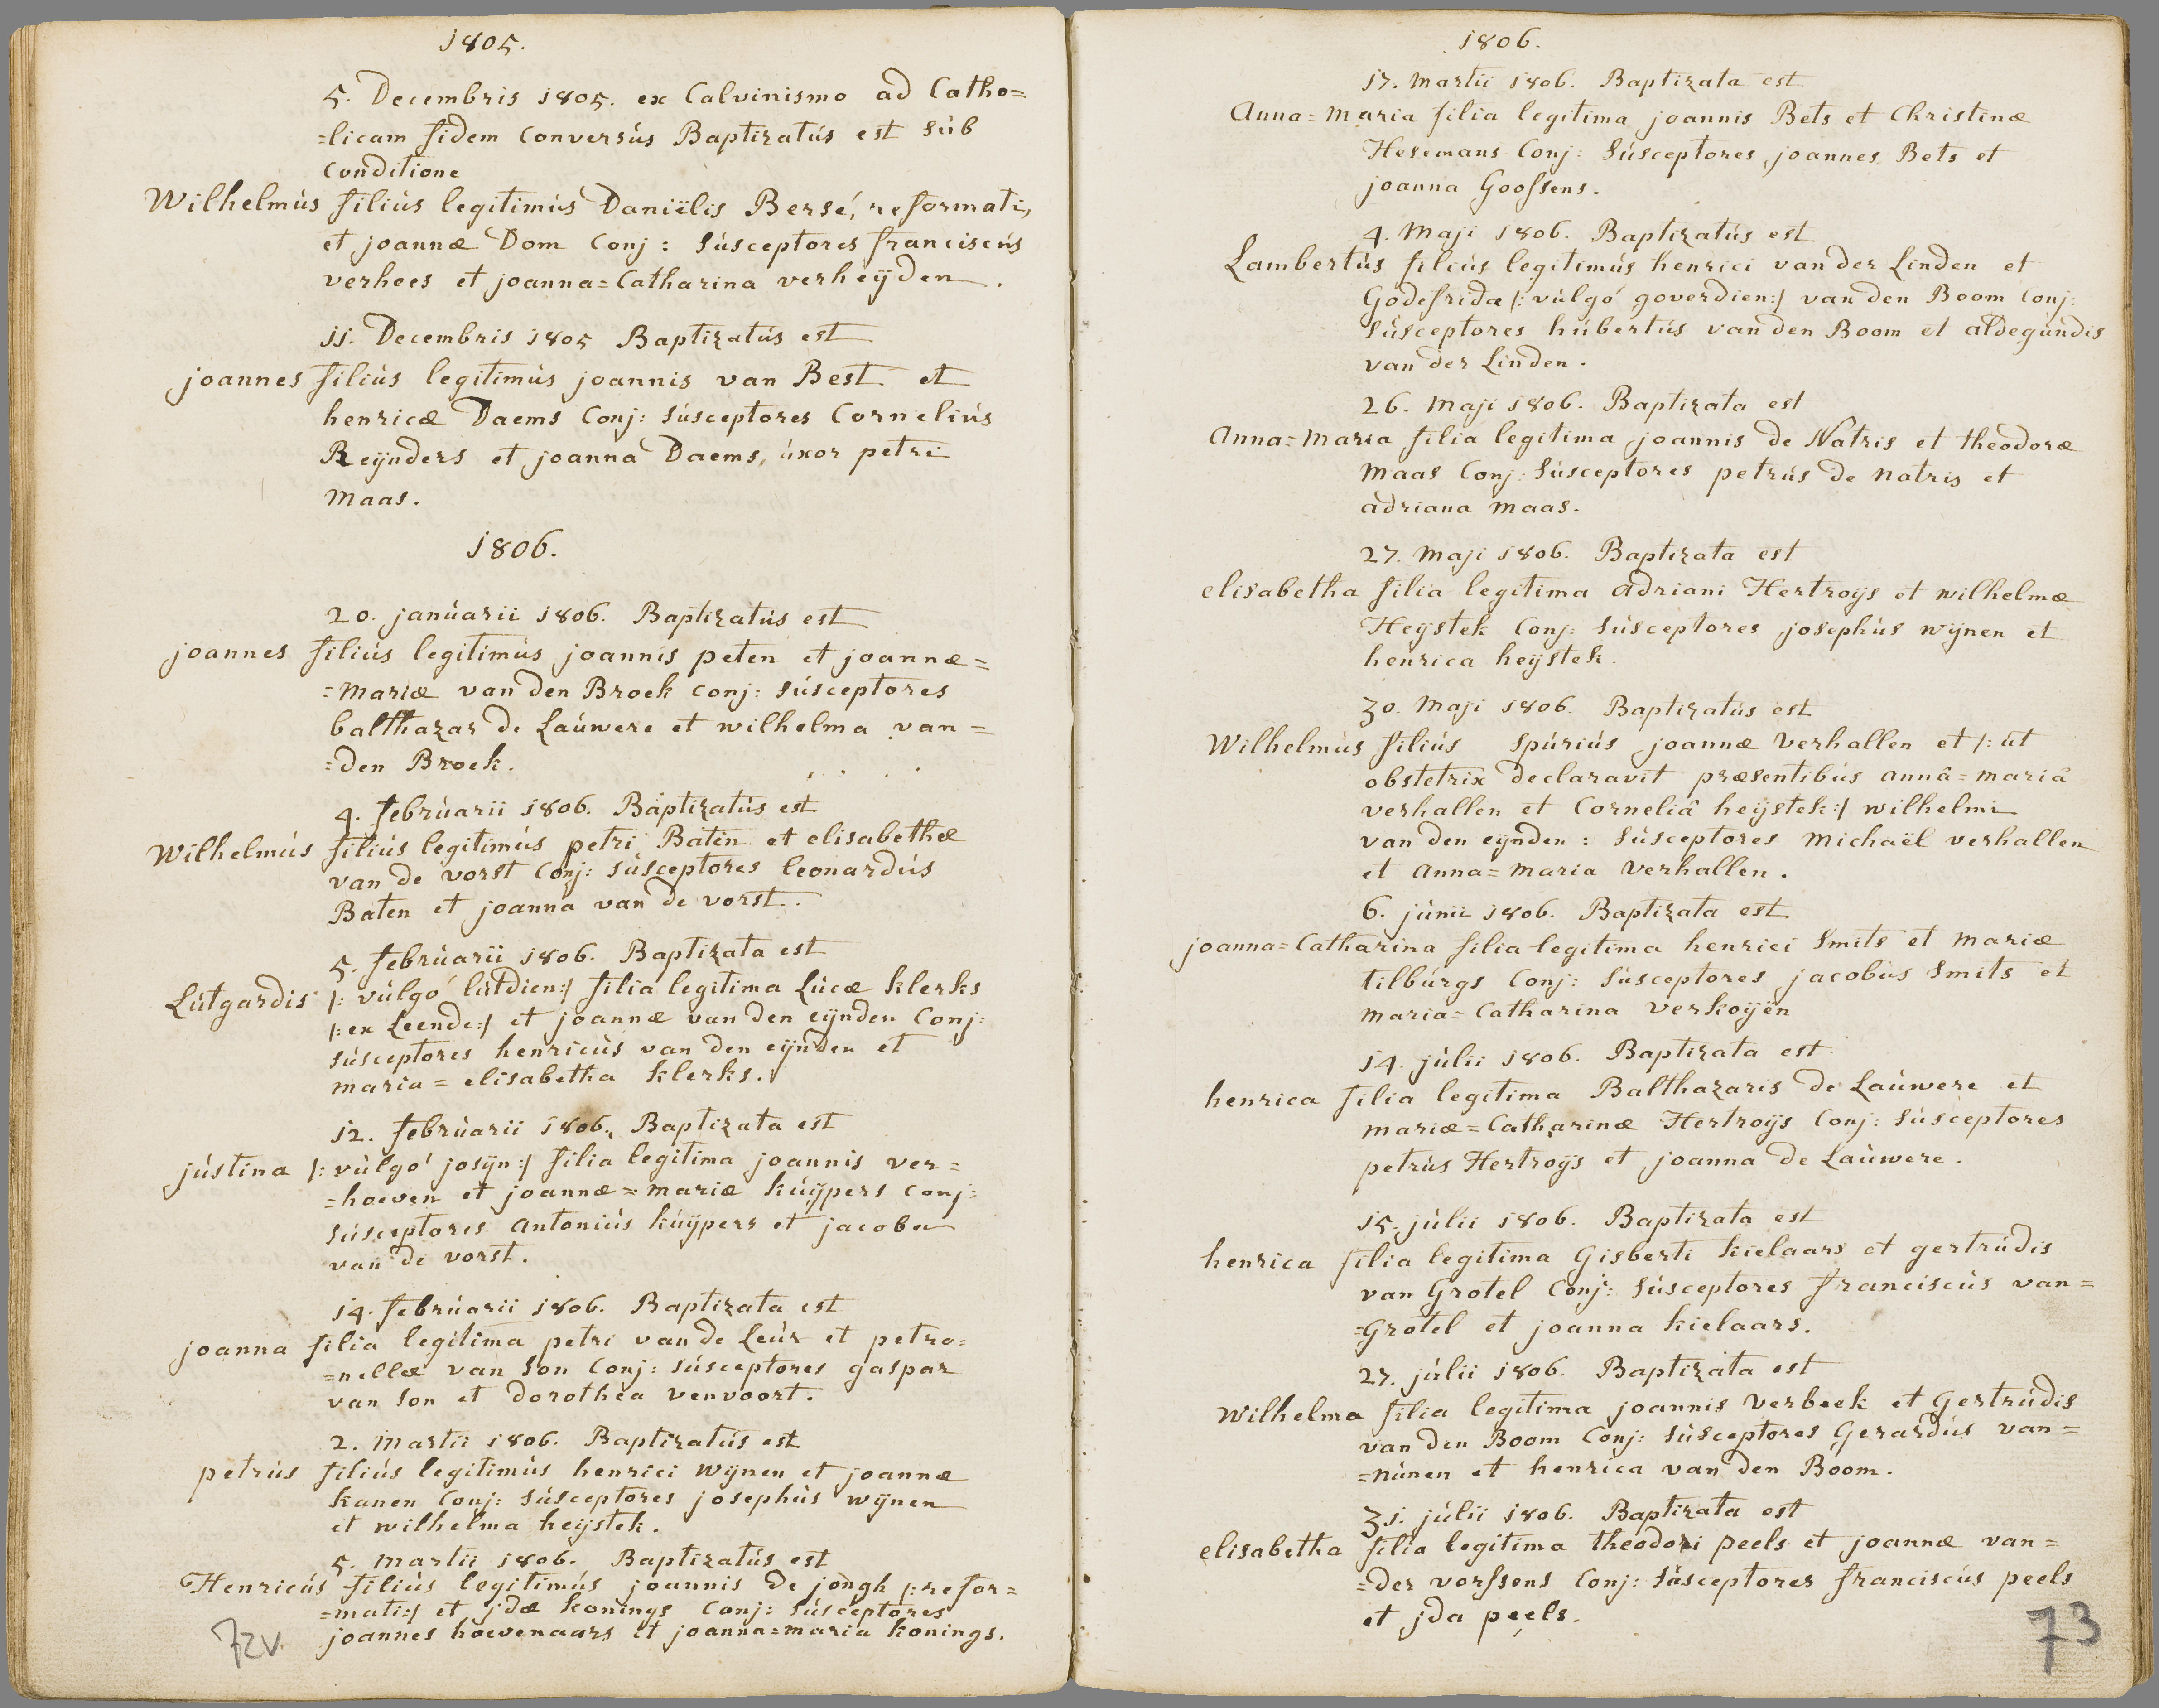 1805.
5. Decembris 1805. ex Calvinismo ad Catho=
=licam fidem conversús Baptizatús est súb
Conditione
Wilhelmús filiús legitimús Daniëlis Bersé, reformati,
et joannæ Dom Conj: súsceptores franciscús
verhees et joanna=Catharina verheÿden.
11. Decembris 1805 Baptizatús est
joannes filiús legitimús joannis van Best et
henricæ Daems Conj: súsceptores Corneliús
Reÿnders et joanna Daems, úxor petri
maas.
1806.
20. janúarii 1806. Baptizatús est
joannes filiús legitimús joannis peten et joannæ=
=mariæ van den Broek conj: súsceptores
balthazar de Laúwere et wilhelma van=
=den Broek.
4. febrúarii 1806. Baptizatús est
Wilhelmús filiús legitimús petri Baten et elisabethæ
van de vorst Conj: súsceptores leonardús
Baten et joanna van de vorst.
5. febrúarii 1806. Baptizata est
Lútgardis /: vúlgó lútdien:/ filia legitima Lúcæ klerks
/: ex Leende:/ et joannæ van den eÿnden Conj:
súsceptores henricús van den eÿnden et
maria=elisabetha klerks.
12. febrúarii 1806. Baptizata est
jústina /: vúlgó josÿn:/ filia legitima joannis ver=
=hoeven et joannæ=mariæ kúÿpers conj:
súsceptores antoniús kúÿpers et jacoba
van de vorst.
14. febrúarii 1806. Baptizata est
joanna filia legitima petri van de Leúr et petro=
=nellæ van son conj: súsceptores gaspar
van son et dorothea venvoort.
2. martii 1806. Baptizatús est
petrús filiús legitimús henrici wÿnen et joannæ
kanen Conj: súsceptores josephús wÿnen
et wilhelma heÿstek.
5. martii 1806. Baptizatús est
Henricús filiús legitimús joannis de jongh /: refor=
=mati:/ et jdæ konings conj: súsceptores
joannes hoevenaars et joanna=maria konings.
72v.
1806.
17. martii 1806. Baptizata est
Anna=maria filia legitima joannis Bets et Christinæ
Hesemans Conj: súsceptores joannes Bets et
joanna Goossens.
4. maji 1806. Baptizatús est
Lambertús filiús legitimús henrici van der Linden et
Godefridæ /: vúlgó goverdien:/ van den Boom Conj:
súsceptores húbertús van den Boom et aldegúndis
van der Linden.
26. maji 1806. Baptizata est
Anna=maria filia legitima joannis de Natris et theodoræ
maas Conj: súsceptores petrús de natris et
adriana maas.
27. maji 1806. Baptizata est
elisabetha filia legitima adriani Hertroÿs et wilhelmæ
Heÿstek Conj: súsceptores josephús wÿnen et
henrica heÿstek.
30. maji 1806. Baptizatús est
Wilhelmús filiús spúriús joannæ verhallen et /: út
obstetrix declaravit præsentibús annâ=mariâ
verhallen et Corneliâ heÿstek:/ wilhelmi
van den eÿnden: súsceptores michaël verhallen
et anna=maria verhallen.
6. júnii 1806. Baptizata est
joanna=Catharina filia legitima henrici smits et mariæ
tilbúrgs Conj: súsceptores jacobús smits et
maria=Catharina verkoÿen
14. júlii 1806. Baptizata est
henrica filia legitima Balthazaris de Laúwere et
mariæ=Catharinæ Hertroÿs Conj: súsceptores
petrús Hertroÿs et joanna de Laúwere.
15. júlii 1806. Baptizata est
henrica filia legitima Gisberti kielaars et gertrúdis
van Grotel Conj: súsceptores franciscús van=
=Grotel et joanna kielaars.
27. júlii 1806. Baptizata est
Wilhelma filia legitima joannis verbeek et Gertrúdis
van den Boom Conj: súsceptores Gerardús van=
=núnen et henrica van den Boom.
31. júlii 1806. Baptizata est
elisabetha filia legitima theodori peels et joannæ van=
=der vorssens Conj: súsceptores franciscús peels
et jda peels.
73